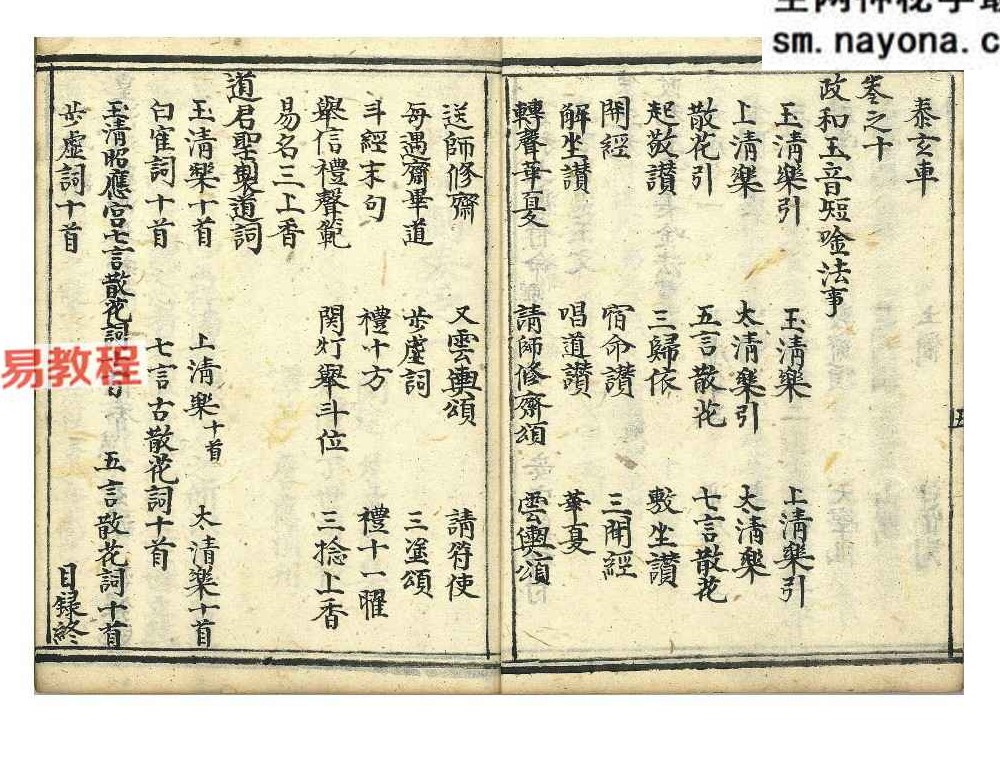 sm.nayona.c
泰玄車
卷之十
政和玉音短唫法事
玉清樂引 玉清樂 上清樂引
上清樂 太清樂引 太清樂
散花引 五言散花 七言散花
起敬讃 三歸依 敷坐讃
開經 宿命讃 三開經
解坐讃 唱道讃 華夏
轉聲華夏 請師修齋頌 雲輿頌
送師修齋 又雲輿頌 請符使
每遇齋畢道 步虛詞 三塗頌
斗經末句 禮十方 禮十一曜
舉信禮聲範 関灯舉斗位 三捻上香
易名三上香
道君聖製道詞
玉清樂十首 上清樂十首 太清樂十首
白隺詞十首 七言古散花詞十首
玉清昭應宮七言散花詞 首 五言散花詞十首
步虛詞十首 目録終
易教程